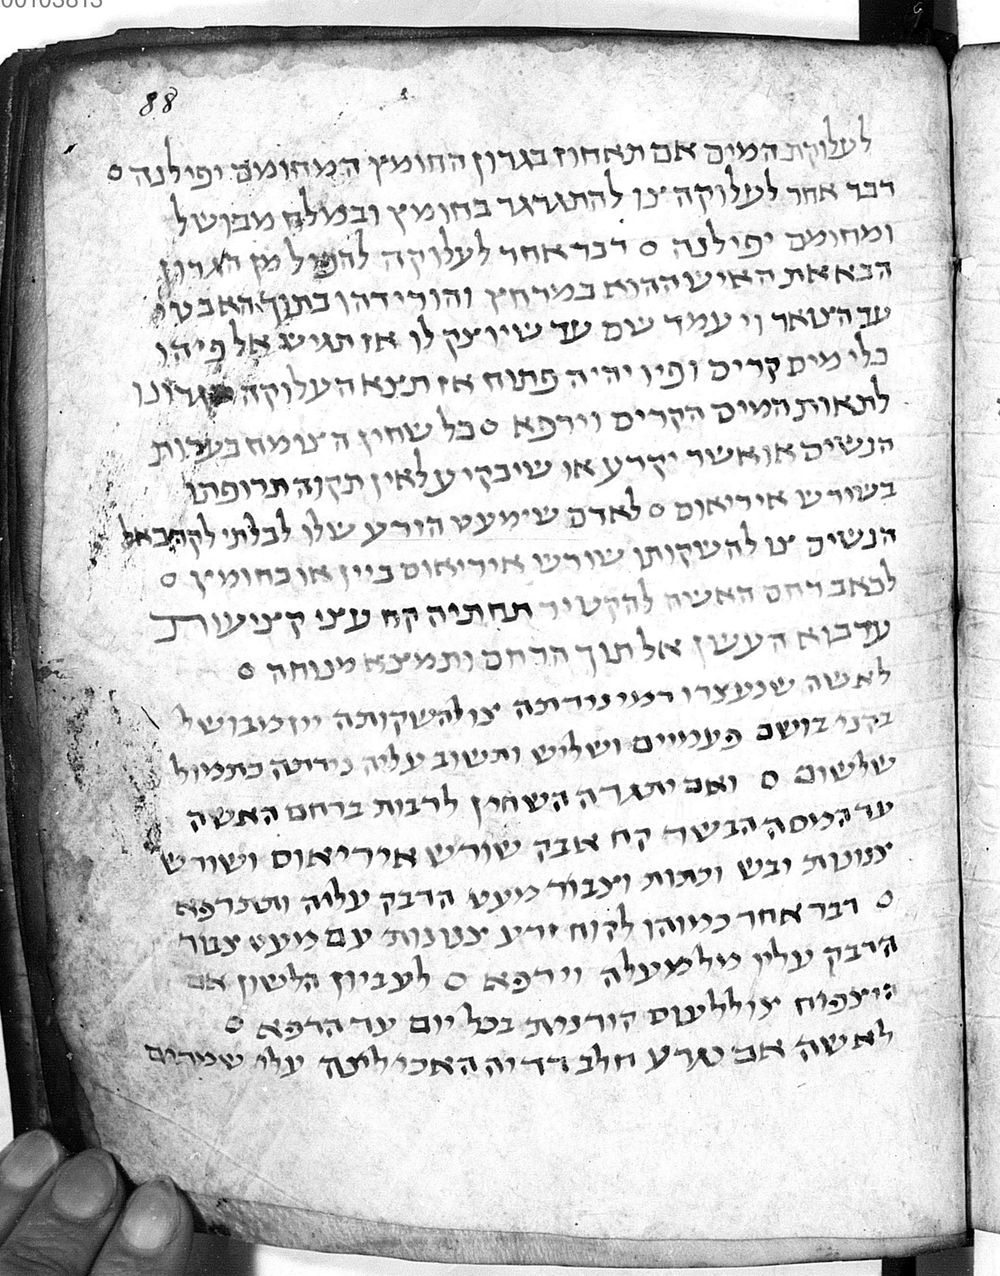 00103813
88
לעלוקת המים אם תאחוז בגרון החומץ המחומם יפילנה ס
דבר אחר לעלוקה צו להתגרגר בחומץ ובמלח מבושל
ומחומם יפילנה ס דבר אחר לעלוקה להפיל מן הגרון
הבא את האיש ההוא במרחץ והורידהו בתוך האבטי
עד הצואר ויעמד שם עד שיוצק לו אז תגיש אל פיהו
כלי מים קרים ופיו יהיה פתוח אז תצא העלוקה מגרונו
לתאות המים הקרים וירפא ס כל שחין הצומח בערות
הנשים או אשר יקרע או שיבקיע לאין תקוה תרופתו
בשורש איריאוס ס לאדם שימעט הזרע שלו לבלתי
הנשים צו להשקותו שורש איריאוס ביין או בחומץ ס
לכאב רחם האשה להקטיר תחתיה קח עצי קציעות
עד בוא העשן אל תוך הרחם ותמצא מנוחה ס
לאשה שנעצרו דמי נידתה צו להשקותה יין מבושל
בקני בושם פעמיים ושליש ותשוב עליה נידתה כתמול
שלשום ס ואם יתגרה השחין לרבות ברחם האשה
עד הבשר קח אבק שורש איריאוס ושורש
צנונות יבש וכתות וצבור מעט הדבק עליה ותתרפא
ס דבר אחר כמוהו לקוח זרע צנונות עם מעט
הדבק עליו מלמעלה וירפא ס לעביון הלשון אם
צו ללעוס קורנית בכל יום עד הרפא ס
לאשה אם גרע חלב דדיה האכילינה עלי